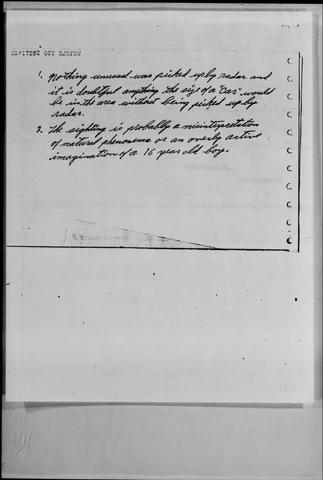 OCT
1. Nothing unusual was picked up by radar and
it is doubtful anything the size of a "Car" would
be in the area without being picked up by
radar.
2. The sighting is probably a misinterpretation
of natural phenomena or an overly active
imagination of a 16 year old boy.